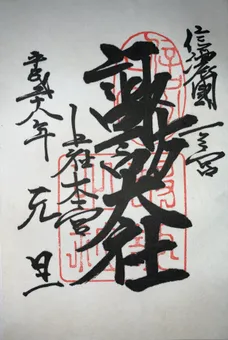 信濃國一之宮
諏訪大社
上社本宮
平成二十八年 元旦